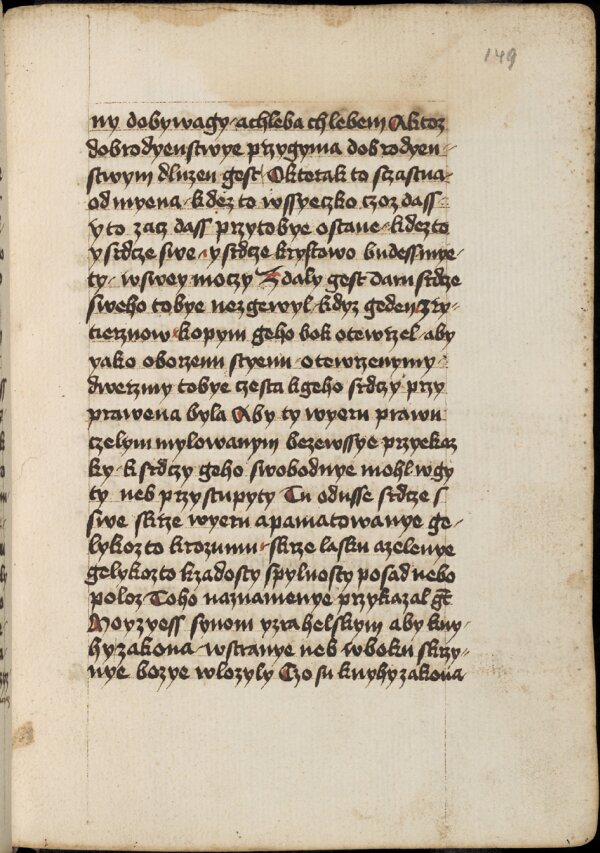 149
ny dobywagy achleba chlebem Aktoz
dobrodyenstwye przygyma dobrodyen-
stwym dluzen gest Oktotak to sczastna
odmyena kdez to wssyeczko czoz dass
y to zacz dass przytobye ostane kdezto
ysrdcze swe ysrdcze krystowo budessmye-
ty wswey moczy Zdaly gest dam srdcze
sweho tobye nezgewyl kdyz geden zry-
tierznow kopym geho bok otewrzel aby
yako oborzenu styenu otewrzenymy
dwerzmy tobye czesta kgeho srdczy przy
prawena byla Aby ty wyeru prawu
czelym mylowanym bezewssye przyekaz
ky k srdczy geho swobodnye mohl wgy
ty neb przystupyty Tu odusse srdcze
swe skrze wyeru apamatowanye ge-
lykozto krozumu skrze lasku azelenye
gelykozto kzadosty spylnosty posad nebo
poloz Toho naznamenye przykazal gt
Moyzyess synom yzrahelskym aby kny-
hy zakona wstranye neb wboku skrzy-
nye bozye wlozyly Czo su knyhy zakona